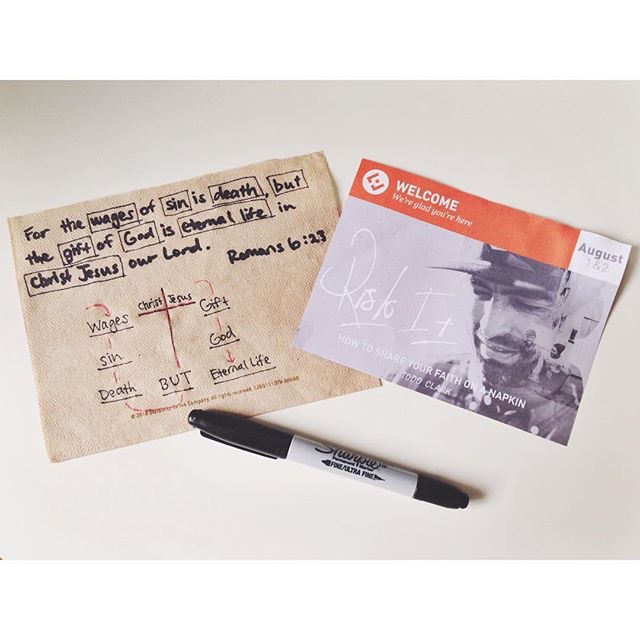 For the wages of sin is death, but
the gift of God is eternal life in
Christ Jesus our Lord. Romans 6:23
Christ Jesus
Wages
sin
Death
BUT
Gift
God
Eternal Life
WELCOME
We're glad you're here
August
1 & 2
Risk It
HOW TO SHARE YOUR FAITH ON A NAPKIN
TODD CLARK
Sharpie
Permanent Marker
FINE/ULTRA FINE